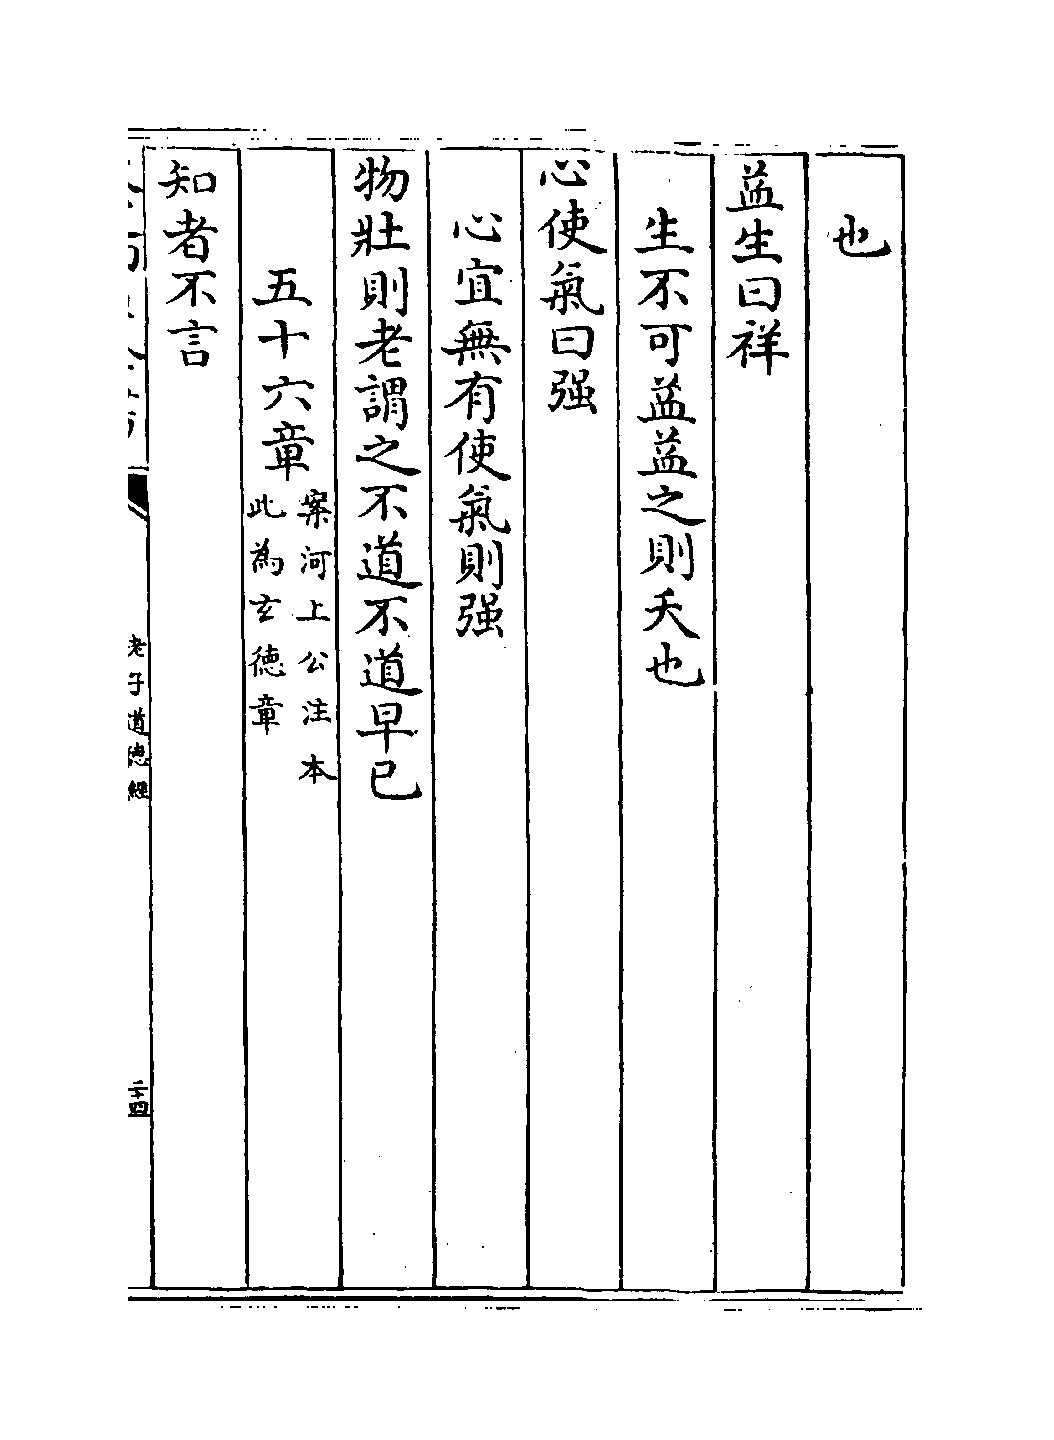 也
益生曰祥
生不可益益之則夭也
心使氣曰强
心宜無有使氣則强
物壯則老謂之不道不道早已
五十六章
案河上公注本
此為玄德章
知者不言
老子道德經
二十四